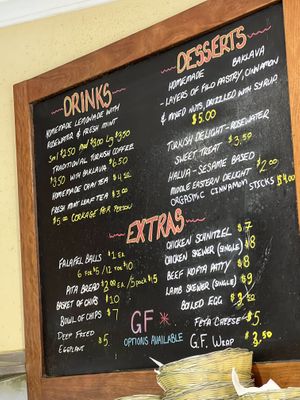 DRINKS
HOMEMADE LEMONADE WITH
ROSEWATER & FRESH MINT
Sml $2.50 Med $3.00 Lrg $3.50
TRADITIONAL TURKISH COFFEE
$3.50 WITH BAKLAVA $6.50
HOMEMADE CHAI TEA $4.50
FRESH MINT LEAF TEA $3.00
$5.00 CORKAGE PER PERSON
DESSERTS
HOMEMADE BAKLAVA
- LAYERS OF FILO PASTRY, CINNAMON
& MIXED NUTS, DRIZZLED WITH SYRUP
$5.00
TURKISH DELIGHT - ROSEWATER
SWEET TREAT $3.50
HALVA - SESAME BASED
MIDDLE EASTERN DELIGHT $2.00
ORGASMIC CINNAMON STICKS $4.00
EXTRAS
FALAFEL BALLS $1 EA
6 FOR $5 / 12 FOR $10
PITA BREAD $2.00 EA / 5 PACK $4.5
BASKET OF CHIPS $10
BOWL OF CHIPS $7
DEEP FRIED
EGGPLANT $5
GF *
OPTIONS AVAILABLE
CHICKEN SCHNITZEL $7
CHICKEN SKEWER (SINGLE) $8
BEEF KOFTA PATTY $8
LAMB SKEWER (SINGLE) $9
BOILED EGG
FETA CHEESE $5
G.F. WRAP $3.50